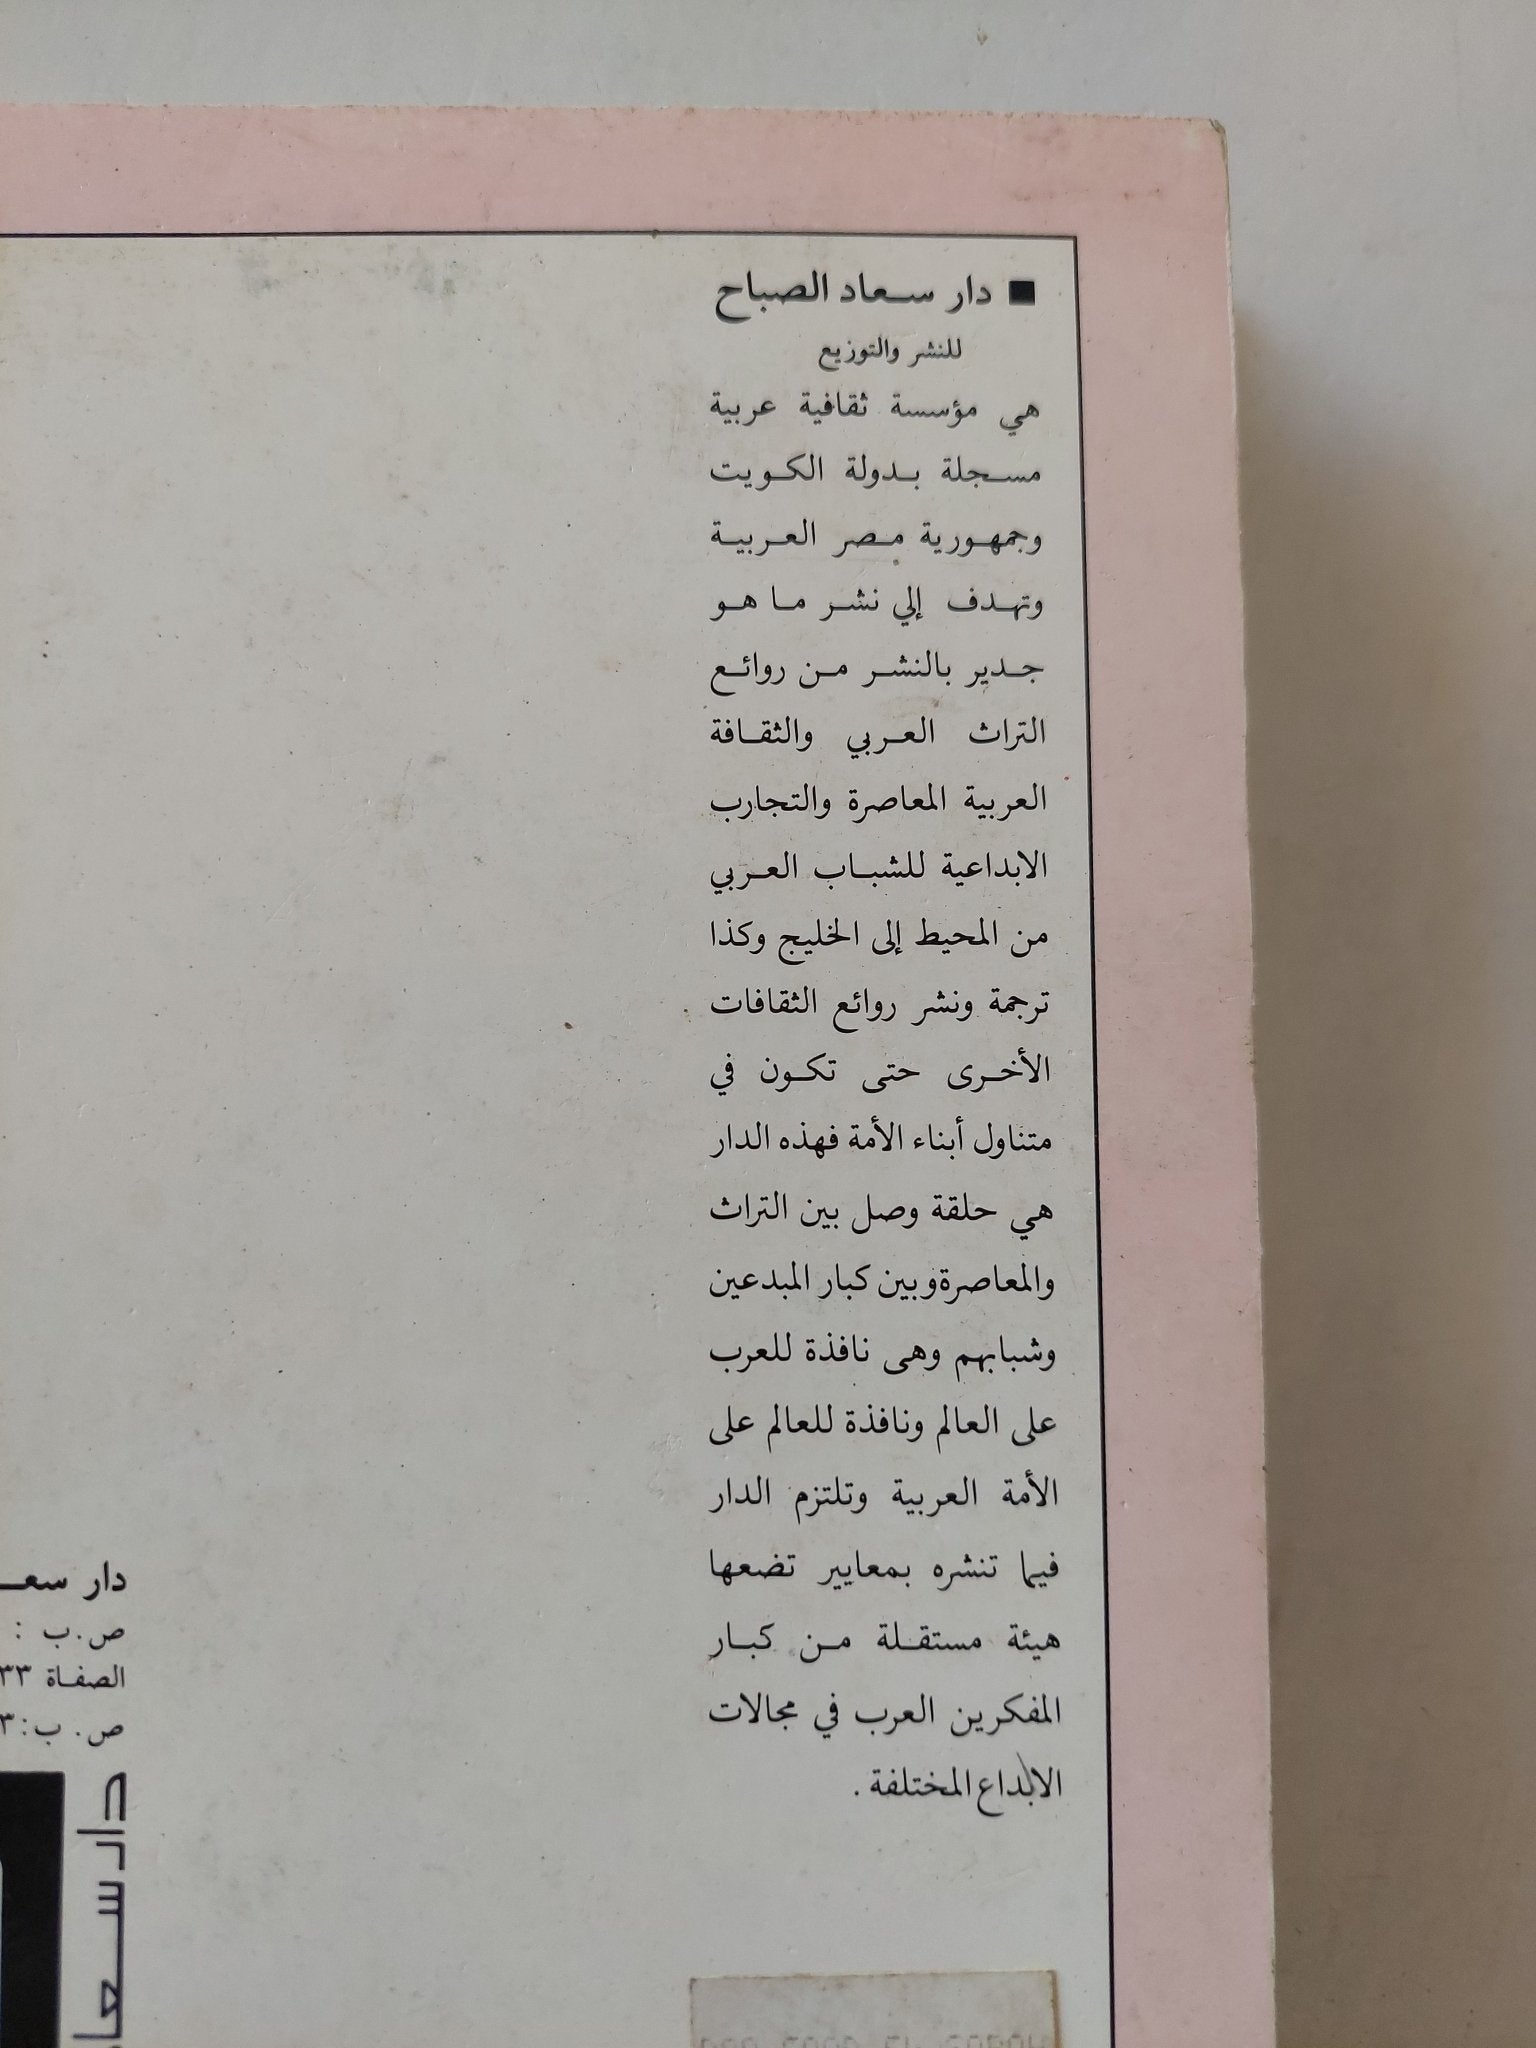 ■ دار سعاد الصباح
للنشر والتوزيع
هي مؤسسة ثقافية عربية
مسجلة بدولة الكويت
وجمهورية مصر العربية
وتهدف إلي نشر ما هو
جدير بالنشر من روائع
التراث العربي والثقافة
العربية المعاصرة والتجارب
الابداعية للشباب العربي
من المحيط إلى الخليج وكذا
ترجمة ونشر روائع الثقافات
الأخرى حتى تكون في
متناول أبناء الأمة فهذه الدار
هي حلقة وصل بين التراث
والمعاصرة وبين كبار المبدعين
وشبابهم وهى نافذة للعرب
على العالم ونافذة للعالم على
الأمة العربية وتلتزم الدار
فيما تنشره بمعايير تضعها
هيئة مستقلة من كبار
المفكرين العرب في مجالات
الابداع المختلفة .
دار سعـ
ص.ب :
الصفاة ٣٣
ص. ب:٣
دار سعا